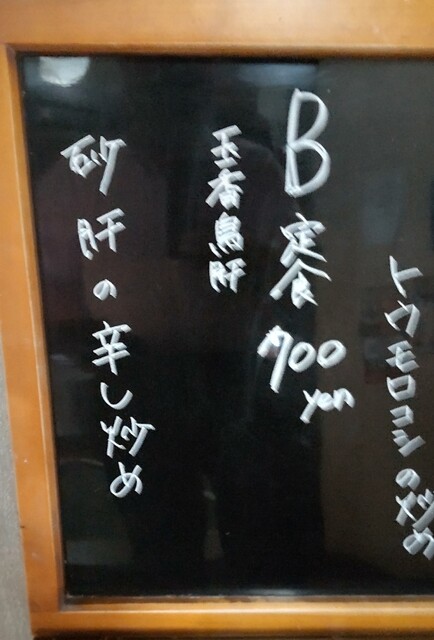 トウモロコシの炒め
B定食
700
yen
五香鳥肝
砂肝の辛し炒め